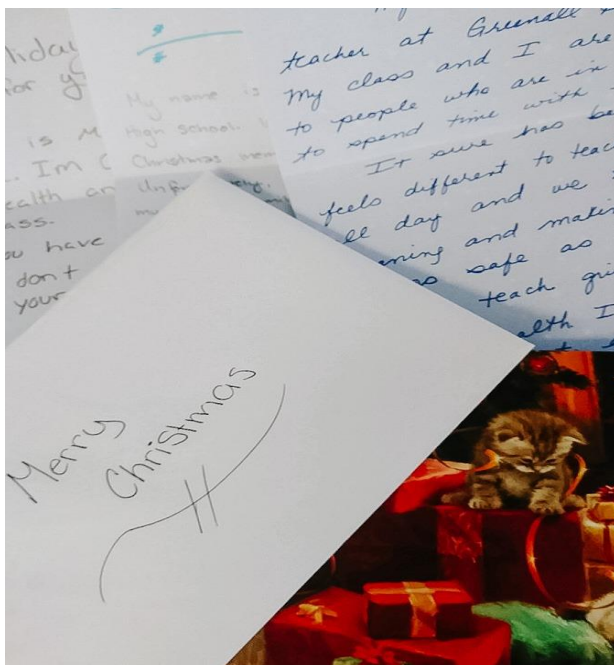 liday
for y
is M
. Im
ealth an
ass.
ou have
don't
your
My name is
High school.
Christmas mem
teacher at Greenall
My class and I are
to people who are in
to spend time with
It sure has be
feels different to teac
ll day and we
ning and makin
as safe as
teach gri
alth I
Merry
Christmas